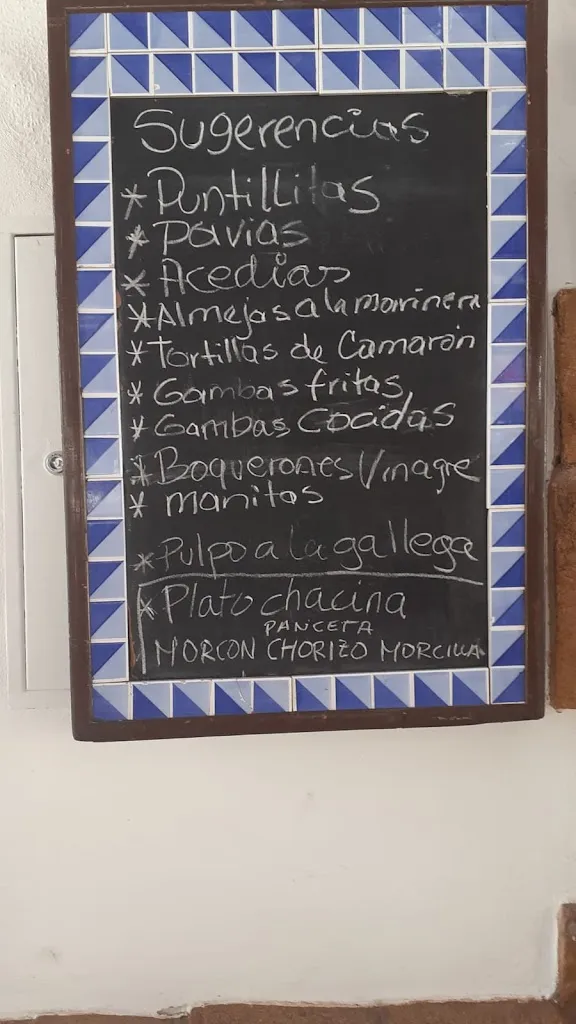 Sugerencias
* Puntillitas
* Pavias
* Acedias
* Almejas a la marinera
* Tortillas de Camarón
* Gambas fritas
* Gambas Cocidas
* Boquerones Vinagre
* manitas
* Pulpo a la gallega
* Plato chacina
PANCETA
MORCON CHORIZO MORCILLA